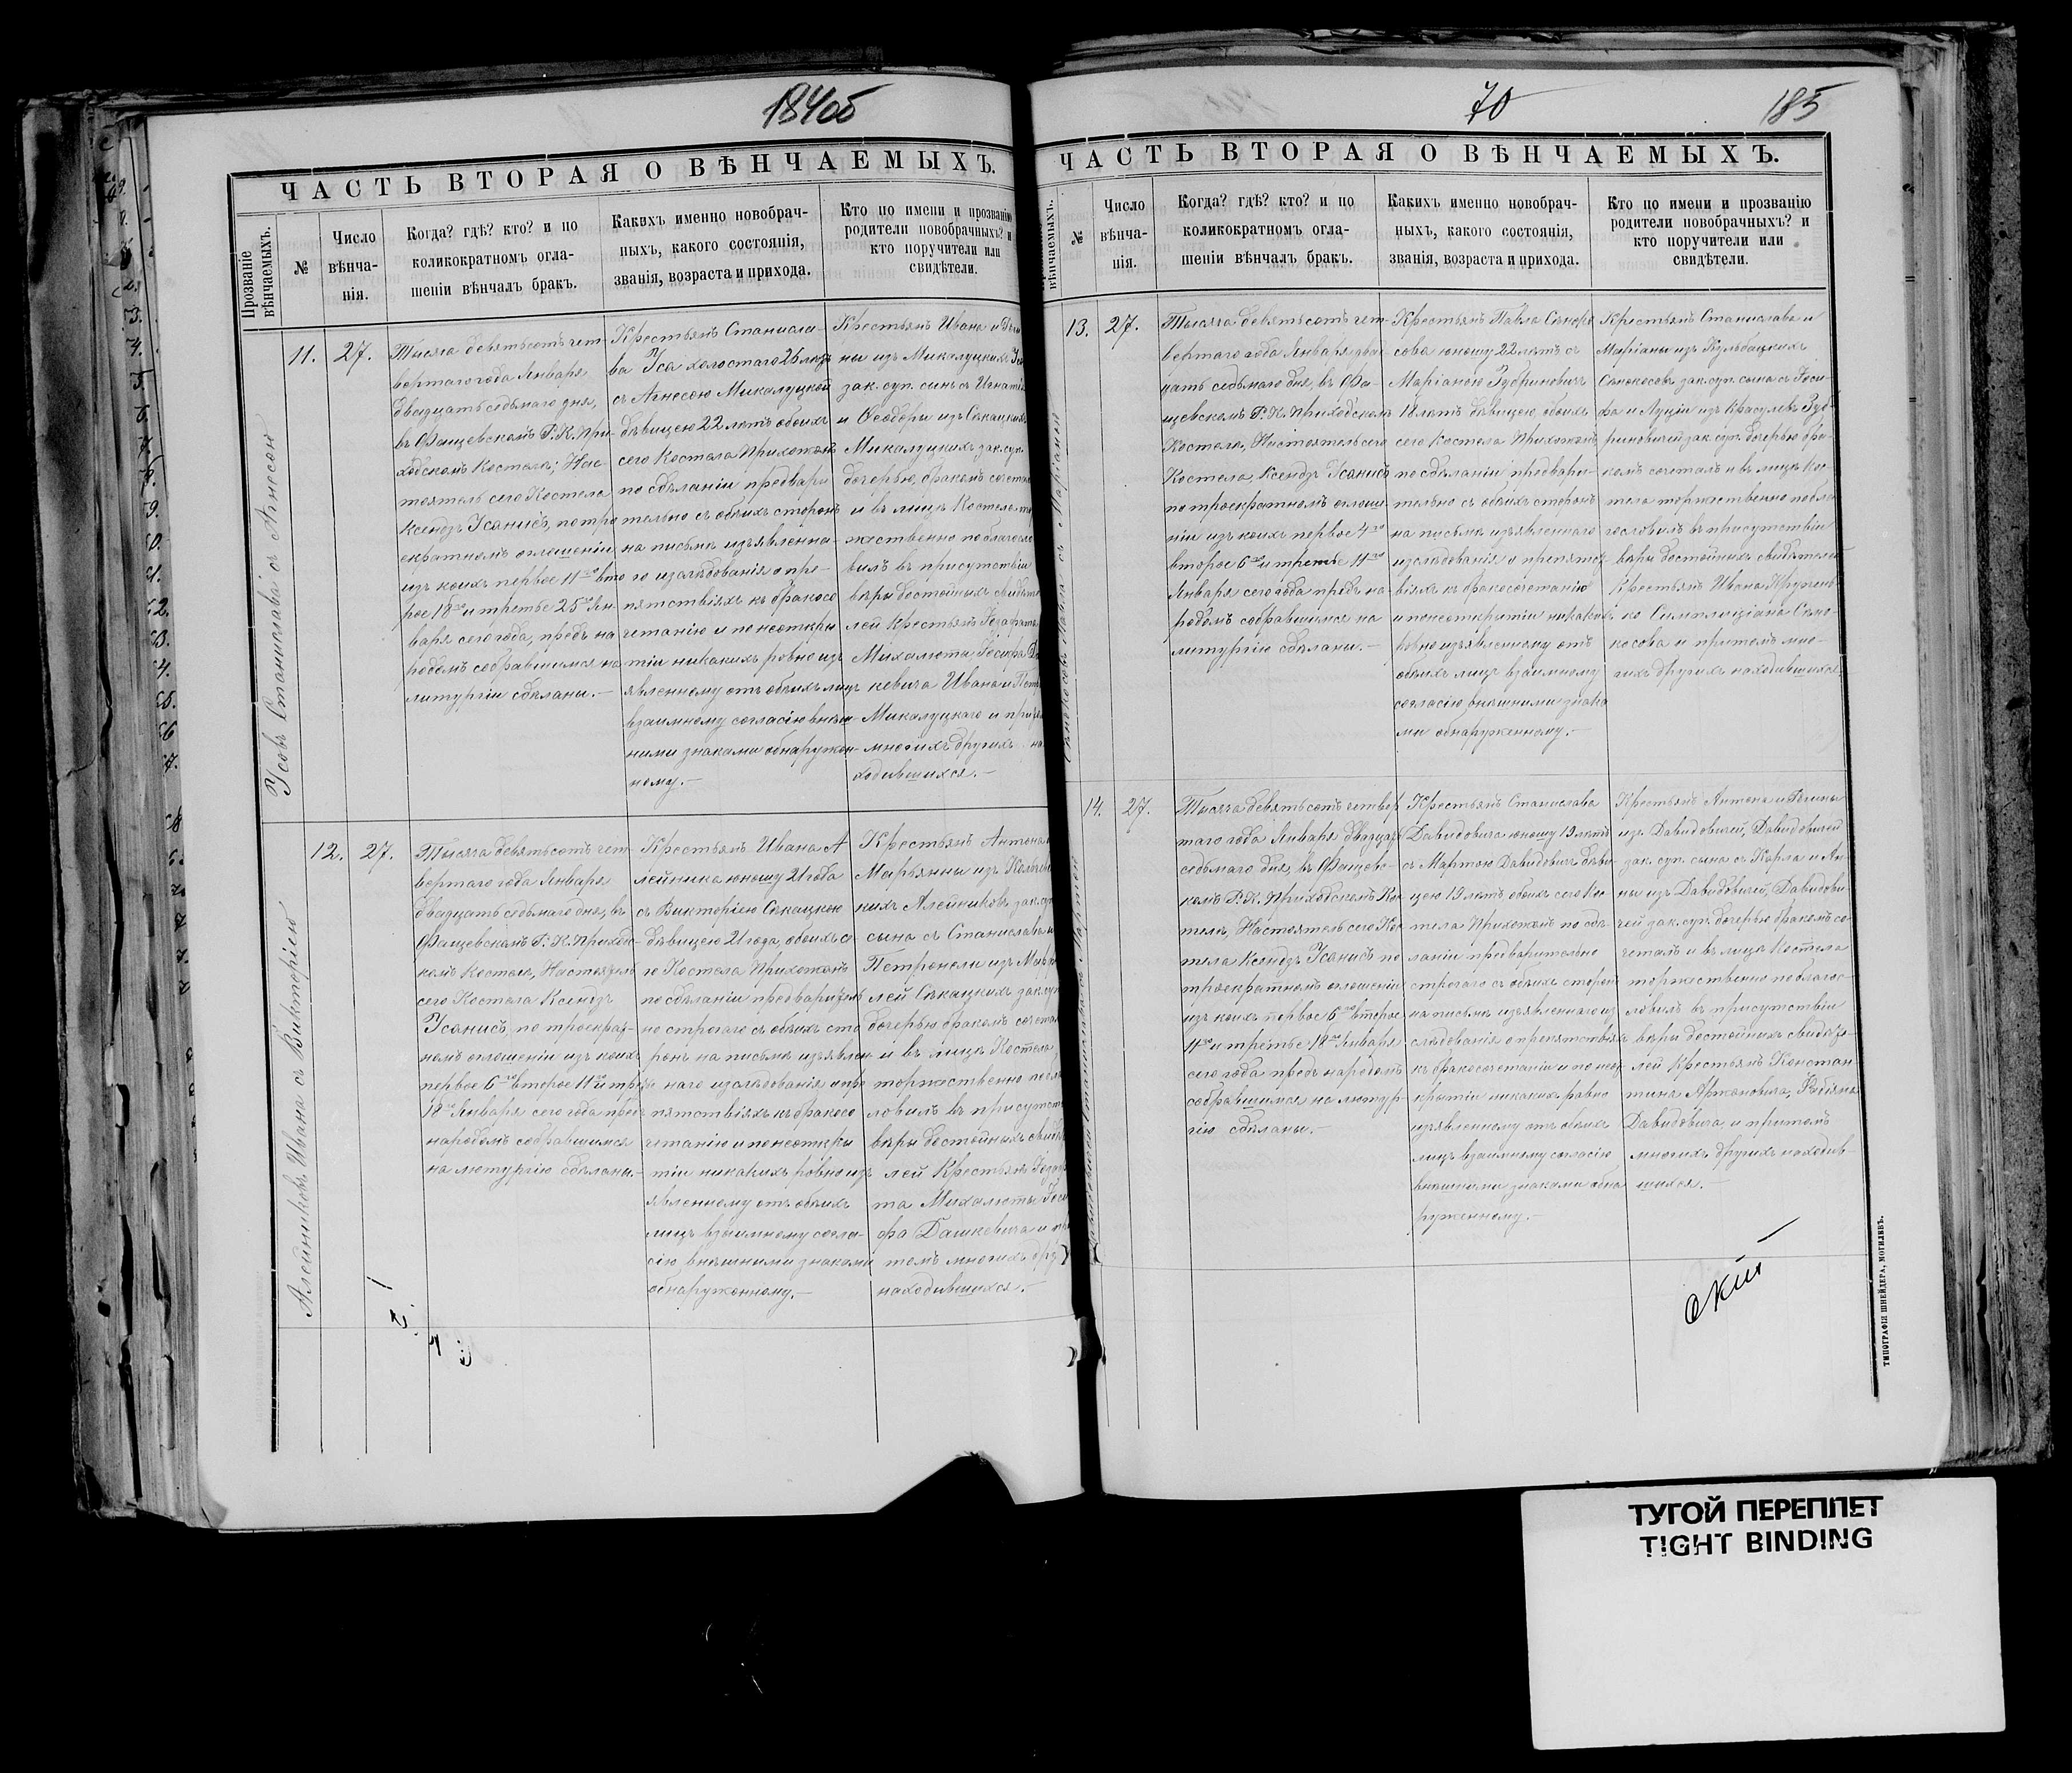 184об
ЧАСТЬ ВТОРАЯ О ВѢНЧАЕМЫХЪ.
Прозваніе вѣнчаемыхъ.
№
Число вѣнча-
нія.
Когда? гдѣ? кто? и по
коликократномъ огла-
шеніи вѣнчалъ бракъ.
Какихъ именно новобрач-
ныхъ, какого состоянія,
званія, возраста и прихода.
Кто по имени и прозванію
родители новобрачныхъ? и
кто поручители или
свидѣтели.
Усовъ Станислава съ Агнесою
11.
27.
Тысяча девятьсотъ чет-
вертаго года Января
двадцать седьмаго дня,
въ Фащевскомъ Р. К. При-
ходскомъ Костелѣ, Нас-
тоятель сего Костела
Ксендзъ Усанисъ, по тро
екратномъ оглашеніи
изъ коихъ первое 11го вто
рое 18го и третье 25го Ян
варя сего года, предъ на
родомъ собравшимся на
литургіи сдѣланы.—
Крестьянъ Станисла-
ва Уса холостаго 26 лѣтъ
съ Агнесою Микалуцкой
дѣвицею 22 лѣтъ обоихъ
сего Костела Прихожанъ
по сдѣланіи предвари
тельно съ обѣихъ сторонъ
на письмѣ изъявленна-
го изслѣдованія о пре-
пятствіяхъ къ бракосо
четанію и по неоткры
тіи никакихъ ровно изъ
явленному отъ обѣихъ лицъ
взаимному согласію внѣш-
ними знаками обнаружен-
ному.—
Крестьянъ Ивана и
ны изъ Микалуцкихъ
зак. суп. сынъ съ Игнатія
и Ѳеодоры изъ Сѣкацкихъ
Микалуцкихъ зак. суп.
дочерью, бракомъ сочета
и въ лицѣ Костела
жественно поблагосло
вилъ въ присутствіи
вѣры достойныхъ свидѣте
лей Крестьянъ Іозафата
Михалюта Іосифа
кевича Ивана и
Микалуцкаго и при
многихъ другихъ на
ходившихся.—
Алейниковъ Ивана съ Викторіею
12.
27.
Тысяча девятьсотъ чет
вертаго года Января
двадцать седьмаго дня, въ
Фащевскомъ Р. К. Приходс
комъ Костелѣ, Настоятель
сего Костела Ксендзъ
Усанисъ, по троекрат-
номъ оглашеніи изъ коихъ
первое 6го второе 11го и треть
18го Января сего года предъ
народомъ собравшимся
на литургію сдѣланы.—
Крестьянъ Ивана А
лейника юношу 21 года
съ Викторіею Сѣкацкою
дѣвицею 21 года, обоихъ се
го Костела Прихожанъ
по сдѣланіи предваритель
но строгаго съ обѣихъ сто
ронъ на письмѣ изъявлен
наго изслѣдованія о пре
пятствіяхъ къ бракосо
четанію и по неоткры
тіи никакихъ ровно изъ
явленному отъ обѣихъ
лицъ взаимному согла-
сію внѣшними знаками
обнаруженному.—
Крестьянъ Антона
Марьянны изъ
кихъ Алейниковъ зак. суп
сына съ Станислава и
Петронели изъ
лей Сѣкацкихъ зак. суп
дочерью бракомъ сочета
и въ лицѣ Костела
торжественно побла
ловилъ въ присутст
вѣры достойныхъ свидѣ
лей Крестьянъ
та Михалюты
фа Дашкевича и при
томъ многихъ дру
находившихся.—
70
185
ЧАСТЬ ВТОРАЯ О ВѢНЧАЕМЫХЪ.
вѣнчаемыхъ.
№
Число
вѣнча-
нія.
Когда? гдѣ? кто? и по
коликократномъ огла-
шеніи вѣнчалъ бракъ.
Какихъ именно новобрач-
ныхъ, какого состоянія,
званія, возраста и прихода.
Кто по имени и прозванію
родители новобрачныхъ? и
кто поручители или
свидѣтели.
13.
27.
Тысяча девятьсотъ чет-
вертаго года Января два
цать седьмаго дня, въ Фа-
щевскомъ Р. К. Приходском
Костелѣ, Настоятель сего
Костела, Ксендзъ Усанисъ
по троекратномъ оглаше
ніи изъ коихъ первое 4го
второе 6го и третье 11го
Января сего года предъ на
родомъ собравшимся на
литургію сдѣланы.—
Крестьянъ Павла Сѣноко
сова юношу 22 лѣтъ съ
Маріаною Зубриновичъ
18 лѣтъ дѣвицею, обоихъ
сего Костела Прихожанъ
по сдѣланіи предвари-
тельно съ обѣихъ сторонъ
на письмѣ изъявленнаго
изслѣдованія о препятст
віяхъ къ бракосочетанію
и по неоткрытіи никакихъ
ровно изъявленному отъ
обѣихъ лицъ взаимному
согласію внѣшними знака
ми обнаруженному.—
Крестьянъ Станислава и
Маріаны изъ Кульбацкихъ
Сѣнокосовъ зак. суп. сына съ Іоси-
фа и Луціи изъ Красулевъ Зуб-
риновичей зак. суп. дочерью бра-
комъ сочеталъ и въ лицѣ Кос-
тела торжественно побла
гословилъ въ присутствіи
вѣры достойныхъ свидѣтелей
Крестьянъ Ивана
ко Симплиціана Сѣно-
косова и притомъ мно-
гихъ другихъ находившихся.
14.
27.
Тысяча девятьсотъ четвер
таго года Января двадцать
седьмаго дня, въ Фащевс-
комъ Р. К. Приходскомъ Кос
телѣ, Настоятель сего Кос
тела Ксендзъ Усанисъ по
троекратномъ оглашеніи
изъ коихъ первое 6го второе
11го и третье 18го Января
сего года предъ народомъ
собравшимся на литур-
гію сдѣланы.—
Крестьянъ Станислава
Давидовича юношу 19 лѣтъ
съ Мартою Давидовичъ дѣви-
цею 19 лѣтъ обоихъ сего Кос
тела Прихожанъ по сдѣ-
ланіи предварительно
строгаго съ обѣихъ сторонъ
на письмѣ изъявленнаго из
слѣдованія о препятствіях
къ бракосочетанію и по неот
крытіи никакихъ равно
изъявленному отъ обѣихъ
лицъ взаимному согласію
внѣшними знаками обна
руженному.—
Крестьянъ Антона и Регины
изъ Давидовичей, Давидовичей
зак. суп. сына съ Карла и Ан-
ны изъ Давидовичей, Давидови-
чей зак. суп. дочерью бракомъ со-
четалъ и въ лицѣ Костела
торжественно поблагос-
ловилъ въ присутствіи
вѣры достойныхъ свидѣте-
лей Крестьянъ Констан
тина Фабіяна
Давидовича и притомъ
многихъ другихъ находив-
шихся.—
скій
ТИПОГРАФІЯ ШНЕЙДЕРА, МОГИЛЕВЪ.
ТУГОЙ ПЕРЕПЛЕТ
TIGHT BINDING